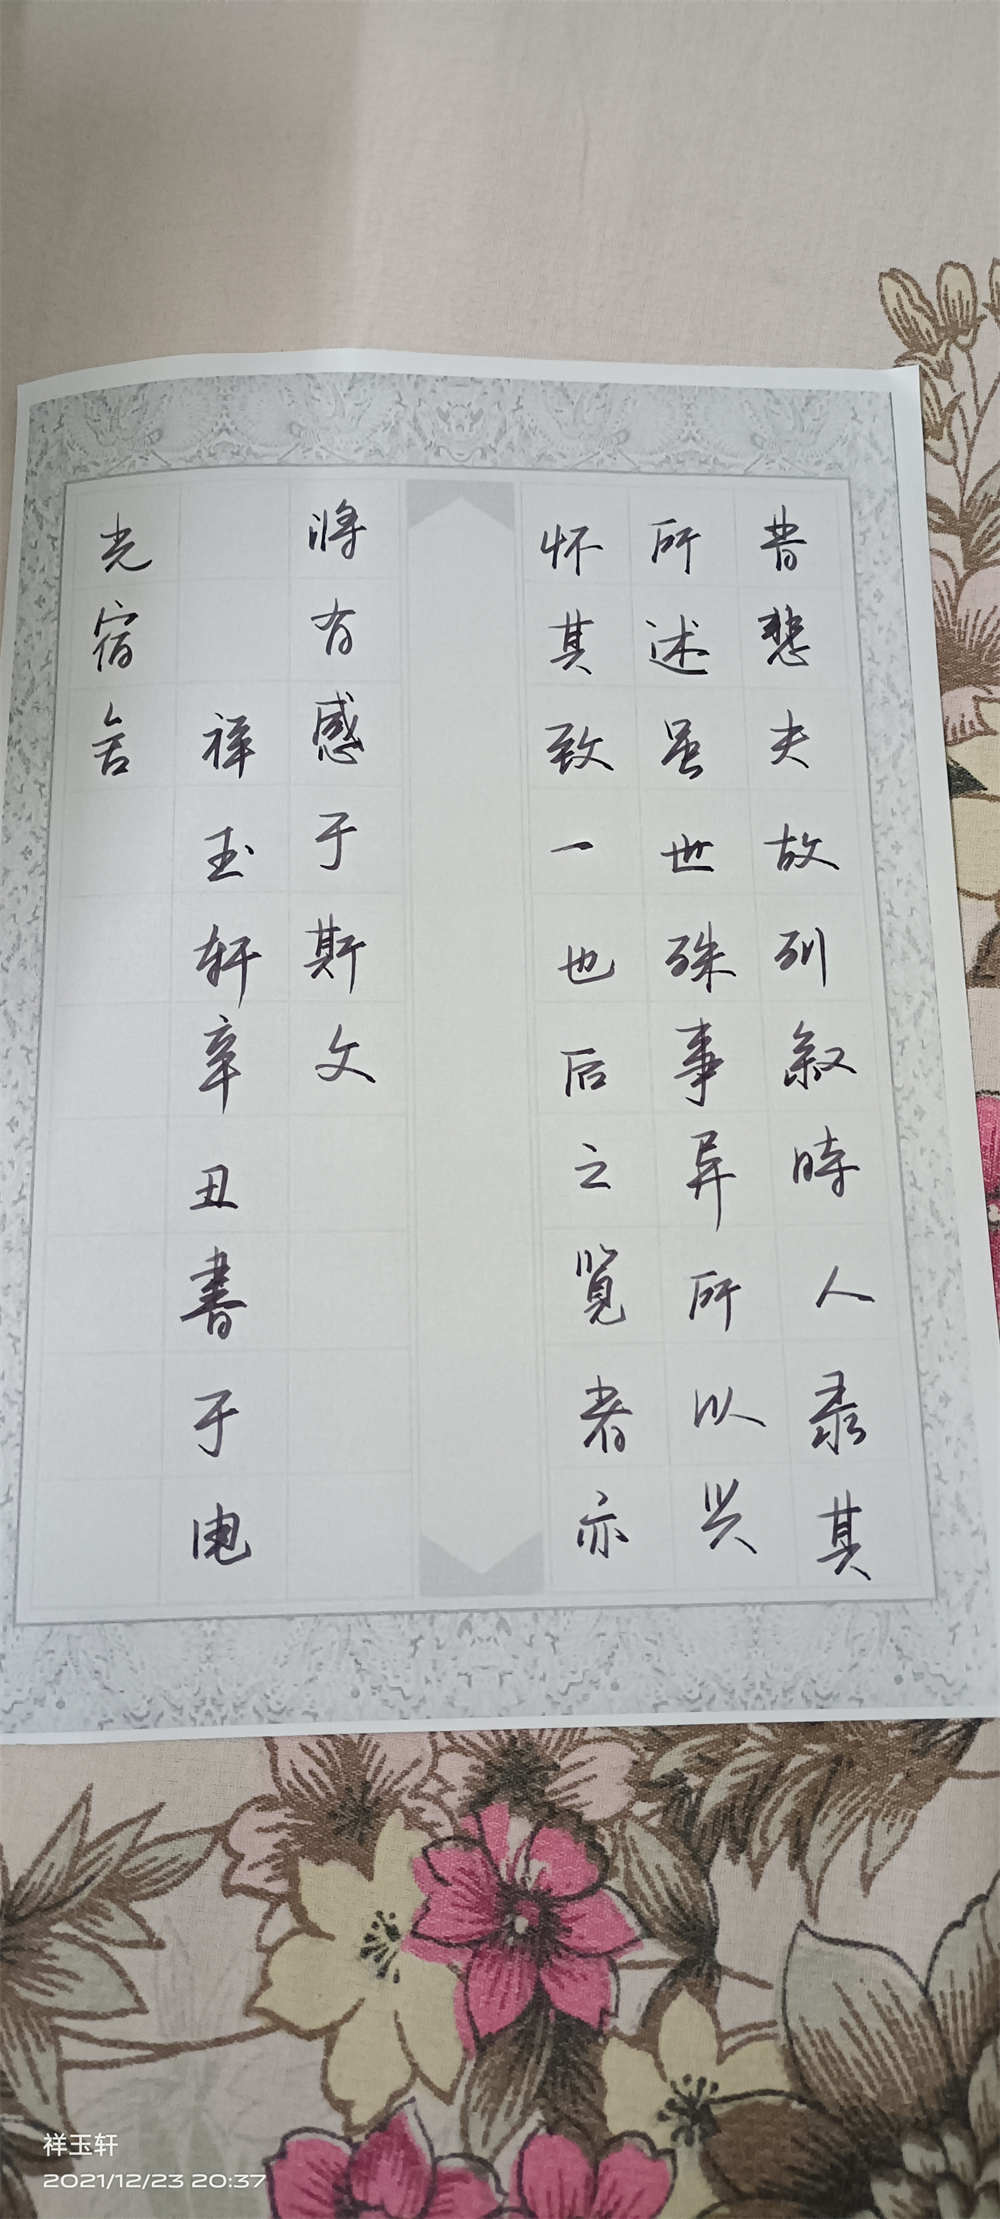 昔悲夫故列叙時人录其
所述虽世殊事异所以兴
怀其致一也后之览者亦
将有感于斯文
祥玉轩辛丑書于电
光宿舍
祥玉轩
2021/12/23 20:37